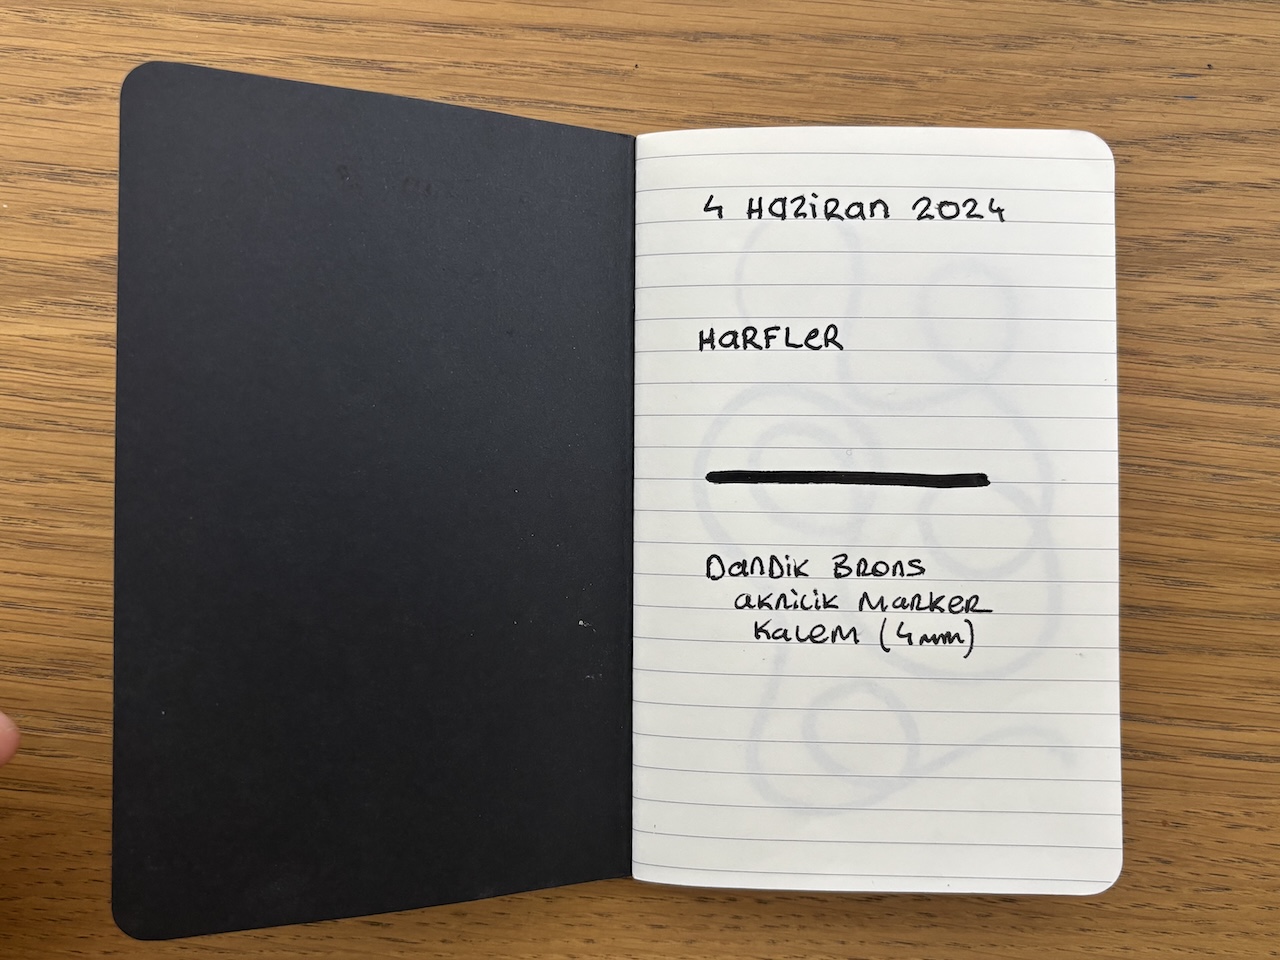 4 Haziran 2024
Harfler
Dandik Brons
akrilik Marker
Kalem (4mm)